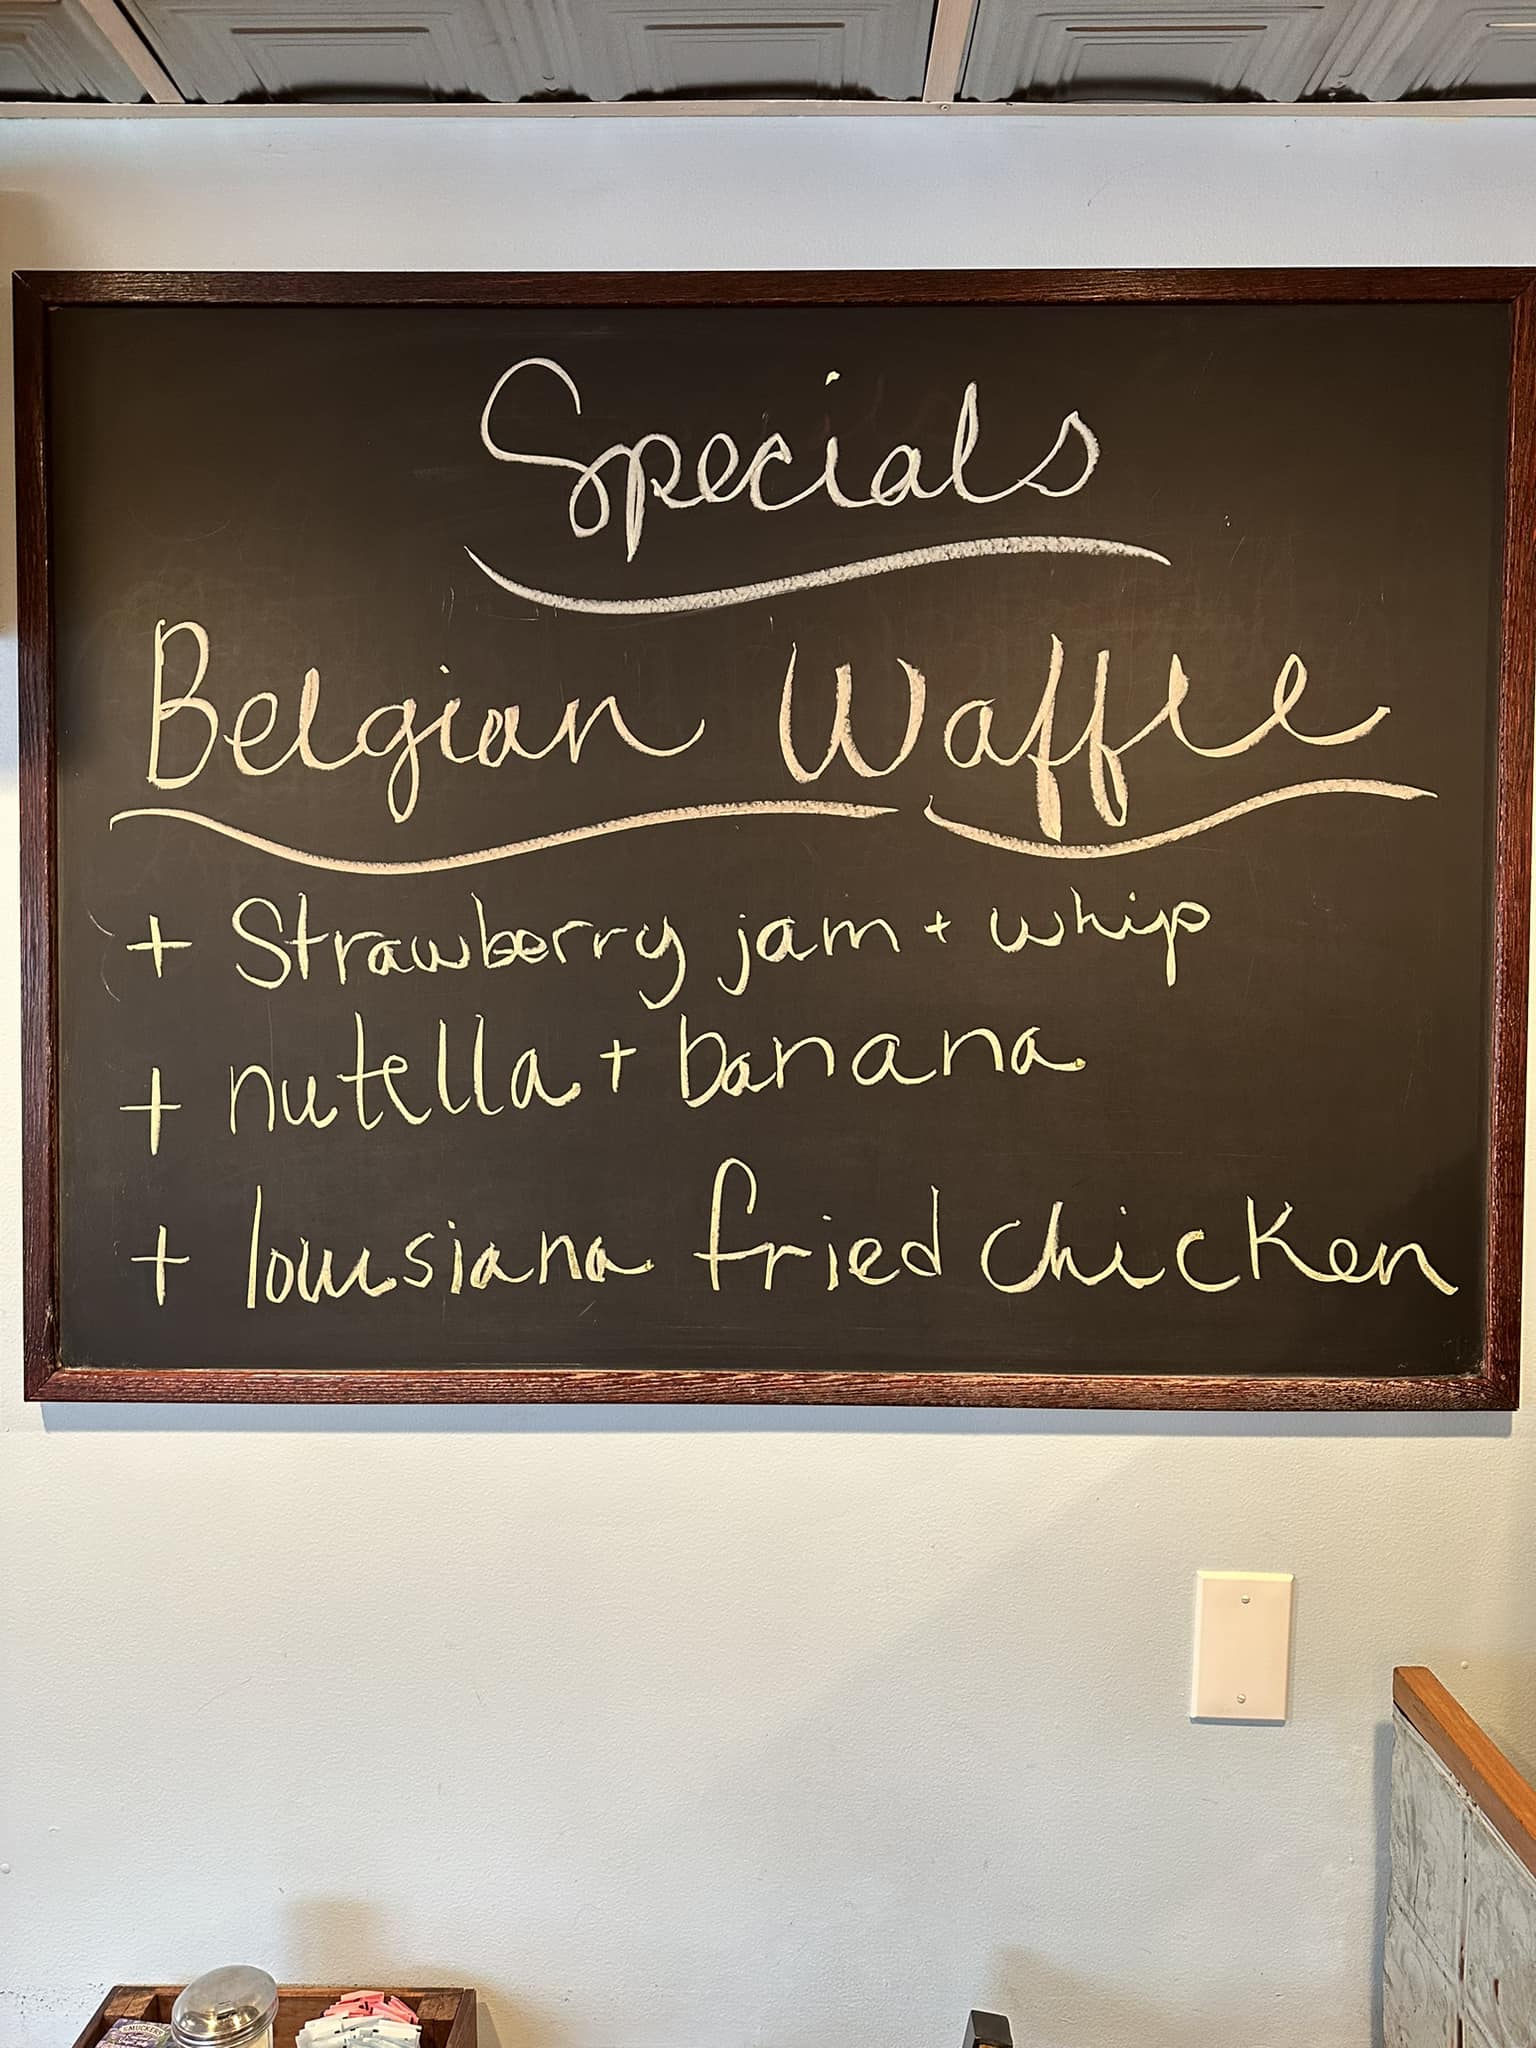 Specials
Belgian Waffle
+ Strawberry jam + whip
+ nutella + banana
+ louisiana fried chicken
SMUCKER'S